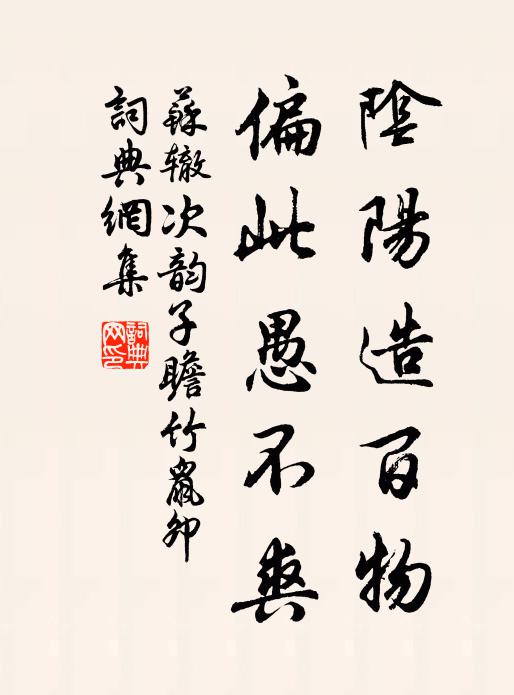 陰陽造百物
偏此愚不爽
蘇轍次韵子瞻竹鼠卯
詞典網集
詞典網印